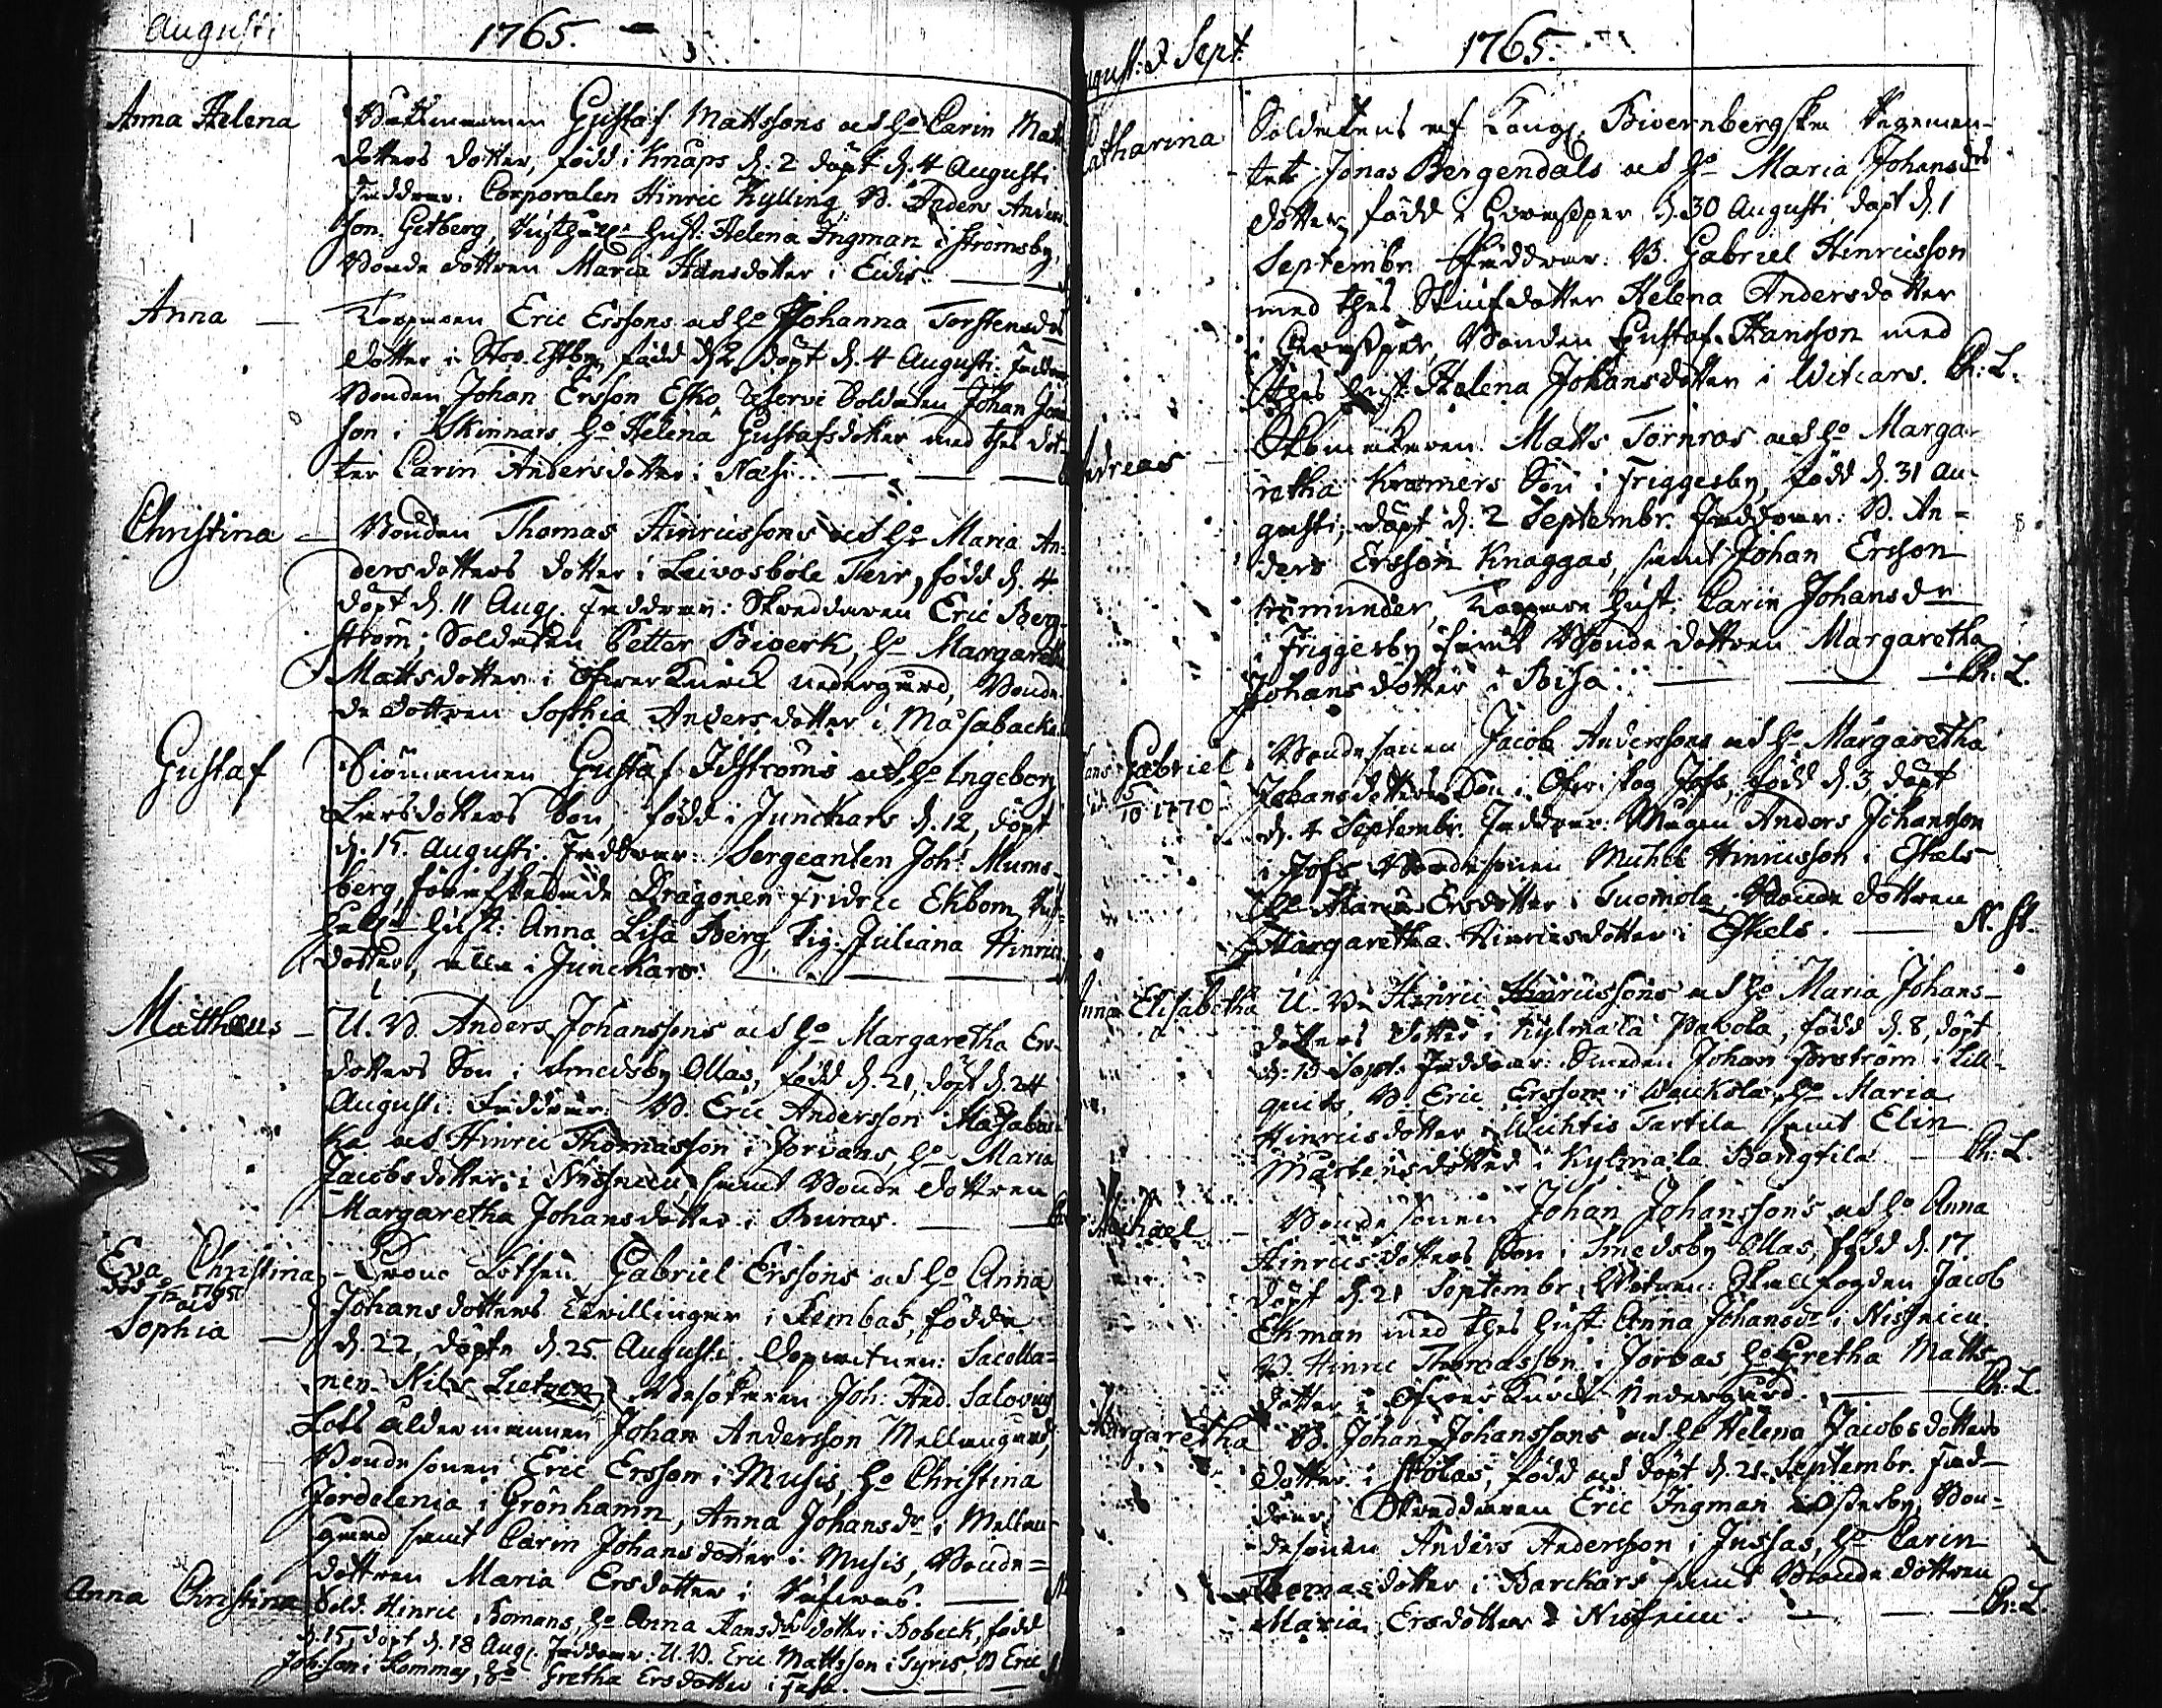 Augusti 1765.
Anna Helena Båtsmannen Gustaf Mattssons och ho Carin Matts
dotters dotter, född i Knaps d. 2 döpt d. 4 Augusti
Faddrar: Corporalen Hinric Kylling B. Anders Anders
son Getberg, hust: Helena Ingman i Strömsby,
Bonde dottren Maria Hansdotter i Eidis.
Anna Torparen Eric Erssons och ho Johanna Torstensdrs
dotter i Stor Estby, född d. 2 döpt d. 4 Augusti: Faddrar
Bonden Johan Ersson Esko Reserve Soldaten Johan Johan
son i Skinnars, ho Helena Gustafsdotter med thes dot-
ter Carin Andersdotter i Näse.
Christina Bonden Thomas Hinricssons och ho Maria An-
dersdotters dotter i Leivosböle Teir, född d. 4
döpt d. 11 Aug. Faddrar: Skreddaren Eric Berg-
ström; Soldaten Petter Biverk, ho Margaretha
Mattsdotter i Öfver Kurck nedergård, Bonde
de dottren Sophia Andersdotter i Masabacka
Gustaf Siömannen Gustaf Idströms och ho Ingeborg
Larsdotters Son, född i Junckars d. 12, döpt
d. 15. Augusti. Faddrar: Sergeanten Joh: Mums-
berg, förafskedade Dragonen Fridric Ekbom,
hust: Anna Lisa Berg, Pig. Juliana Hinrics
dotter, alla i Junckars.
Matthæus U. B. Anders Johanssons och ho Margaretha Ers-
dotters Son i Smedsby Ollas, född d. 21, döpt d. 24
Augusti. Faddrar: B. Eric Andersson i Masabac-
ka och Hinric Thomasson i Jorvas, ho Maria
Jacobsdotter i Nissnicu, samt Bonde dottren
Margaretha Johansdotter i Buras.
Eva Christina Crono Lotsen Gabriel Erssons och ho Anna
och
Sophia Johansdotters Twillingar i Rembas, födde
d. 22, döpte d. 25. Augusti. Dopwitnen: Sacella-
nen Nils Lietzen, Besökaren Joh: And. Salovius
Lots åldermannen Johan Andersson Mellangård,
Bondesonen Eric Ersson i Musis, ho Christina
Jordelenia i Grönhamn, Anna Johansdr i Mellan-
gård samt Carin Johansdotter i Musis, Bonde-
dottren Maria Ersdotter i
Anna Christina Sold. Hinric Bomans, ho Anna Hansdrs dotter i Bobeck, född
d. 15, döpt d. 18 Aug. Faddrar: U. B. Eric Mattsson i Tyris, B Eric
Johsson i Kommas, ho Gretha Ersdotter i
August: & Sept. 1765.
Catharina Soldatens af Kongl. Bivernbergska Regemen-
tet Jonas Bergendals och ho Maria Johansdrs
dotter född i d. 30 Augusti, döpt d. 1
Septembr. Faddrar: B. Gabriel Hinricsson
med thes Stiufdotter Helena Andersdotter
i Bonden Gustaf Hansson med
thes hust: Helena Johansdotter i Witcars. Ch: L.
Andreas Skomakaren Matts Törnros och ho Marga-
retha Kramers Son i Friggesby, född d. 31 Au-
gusti, döpt d. 2 Septembr. Faddrar: B. An-
ders Ersson Knaggas, samt Johan Ersson
Torpare hust: Carin Johansdr
i Friggesby samt Bonde dottren Margaretha
Johansdotter i Boisa. Ch: L.
Gabriel Bondesonen Jacob Anderssons och ho Margaretha
5/10 1770 Johansdotters Son i Ofvitskog Jofs, född d. 3, döpt
d. 4 Septembr. Faddrar: Mågen Anders Johansson
i Jofs Bondesonen Michel Hinricsson i Eskels
ho Maria Ersdotter i Tuomola, Bonde dottren
Margaretha Hinricsdotter i Eskels. N. St.
Anna Elisabetha U. B. Hinric Hinricssons och ho Maria Johans-
dotters dotter i Kylmälä Pavola, född d. 8, döpt
d. 15 Sept. Faddrar: Smeden Johan Forström i Lill-
quits, B. Eric Ersson i Wauckola, ho Maria
Hinricsdotter i Wichtis Tartila samt Elin
Mårtensdotter i Kylmälä Bangtila Ch: L.
Michael Bondesonen Johan Johanssons och ho Anna
Hinricsdotters Son i Smedsby Ollas, född d. 17.
döpt d. 21 Septembr. Witnen: Skallfogden Jacob
Ekman med thes hust: Anna Johansdr i Nissnicu.
B. Hinric Thomasson i Jorvas, ho Gretha Matts-
dotter i Öfver Kurck Nedergård. Ch: L.
Margaretha B. Johan Johanssons och ho Helena Jacobsdotters
dotter i Stölas, född och döpt d. 21. Septembr. Fad-
drar: Skreddaren Eric Ingman i Österby, Bon-
desonen Anders Andersson i Jussas, ho Carin
Thomasdotter i Barckars samt Bonde dottren
Maria Ersdotter i Nissnicu. Ch: L.